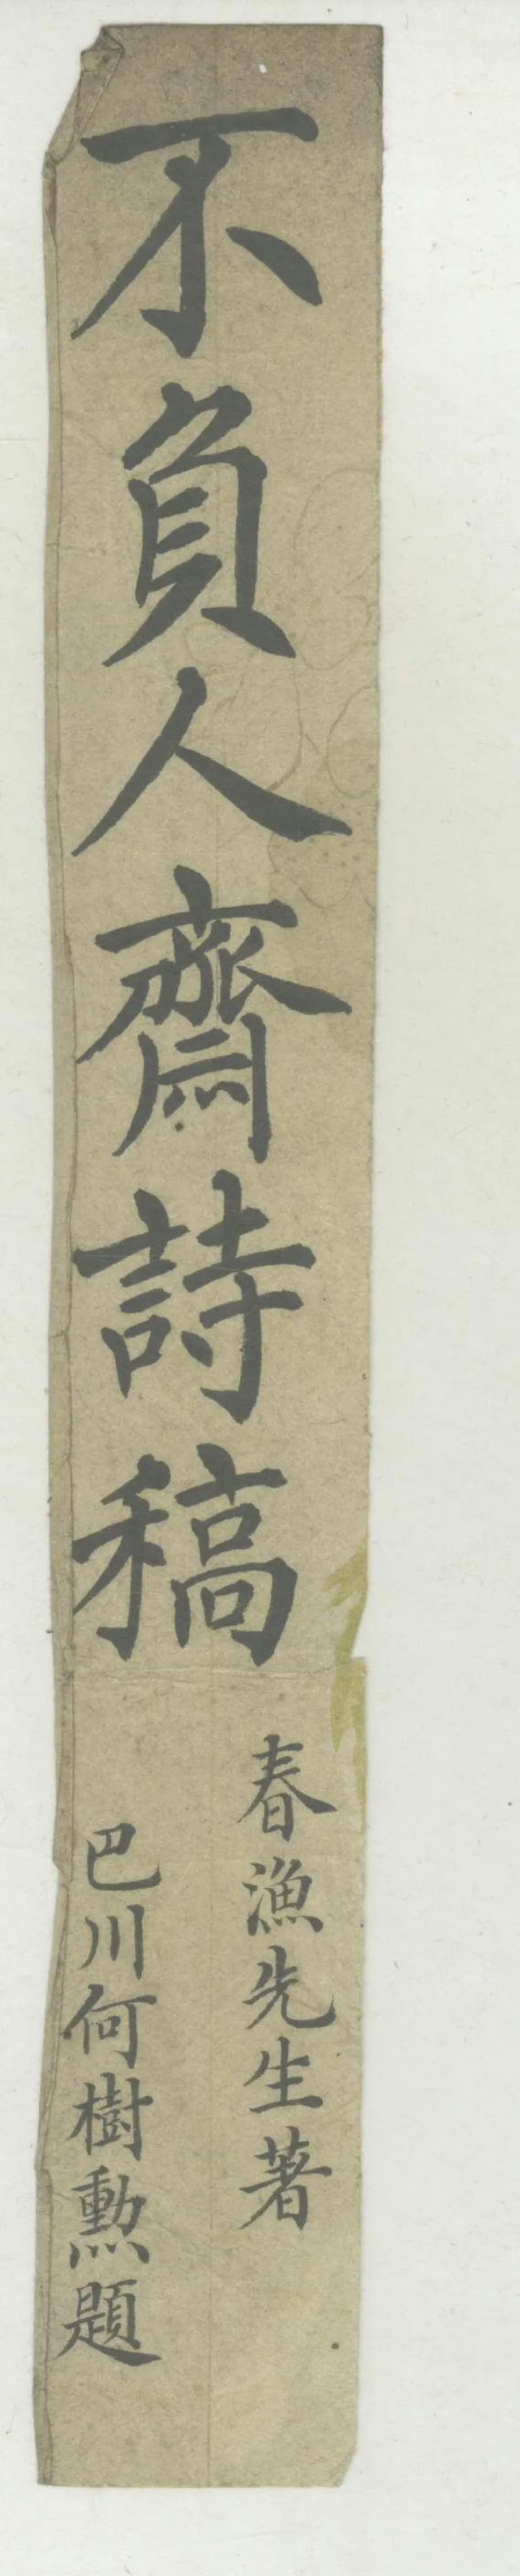 不負人齋詩稿
春漁先生著
巴川何樹勲題